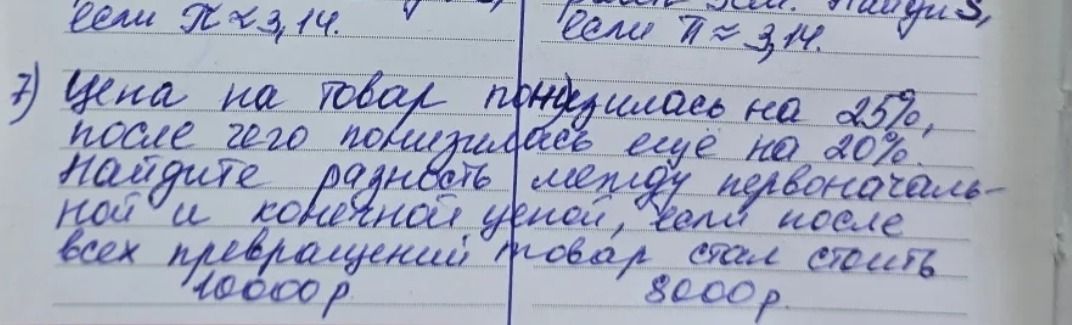 если π ≈ 3,14.
если π ≈ 3,14.
7) Цена на товар понизилась на 25%,
после чего понизилась ещё на 20%.
Найдите разность между первоначаль-
ной и конечной ценой, если после
всех превращений товар стал стоить
10000 р. 8000 р.